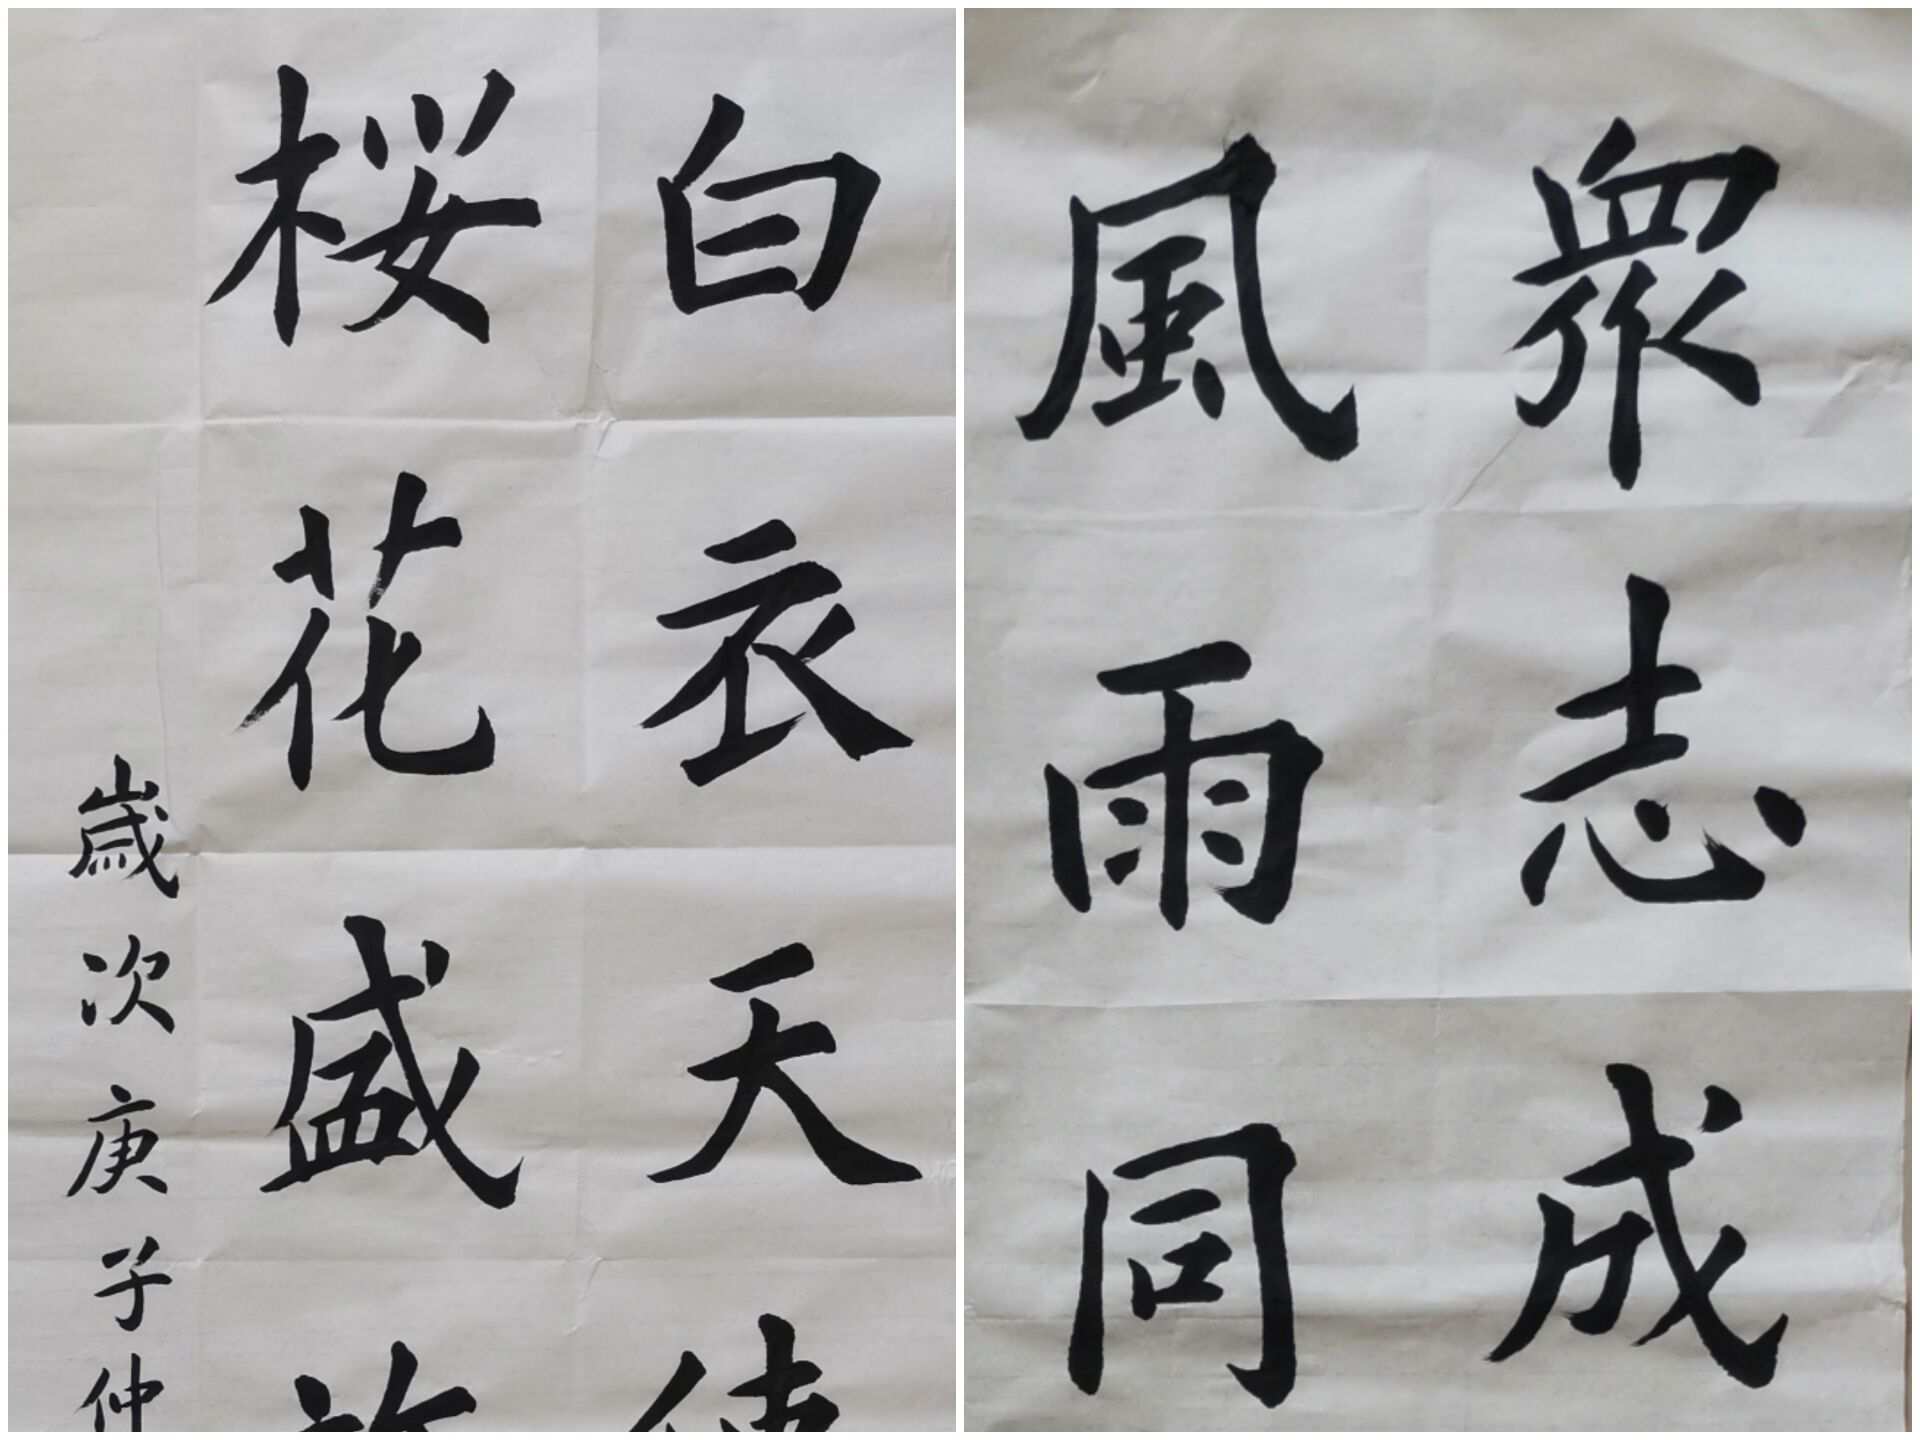 白衣天
桜花盛
嵗次庚子仲
衆志成
風雨同